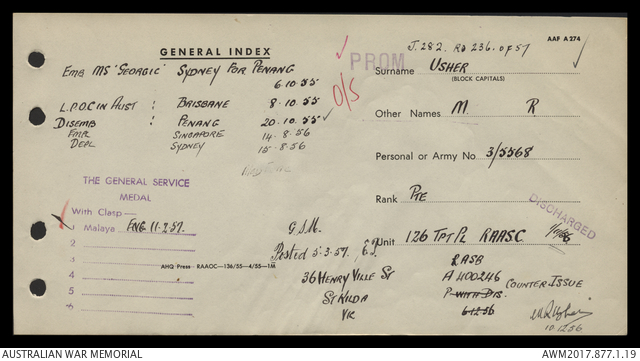 AAF A274
J.282. RO 236. of 57
GENERAL INDEX
PROM
EMB MS 'GEORGIC' SYDNEY FOR PENANG
6.10.55
L.P.O.C IN AUST : BRISBANE 8.10.55
DISEMB : PENANG 20.10.55
EMB SINGAPORE 14.8.56
DEPL SYDNEY 15.8.56
O/S
Surname USHER
(BLOCK CAPITALS)
Other Names M. R.
Personal or Army No 3/5568
Rank PTE
DISCHARGED
Unit 126 TPT PL RAASC
THE GENERAL SERVICE
MEDAL
With Clasp—
1 Malaya ENG 11.2.57.
2
3
4
5
6
AHQ Press - RAAOC-136/55-4/55-1M
G.S.M.
Posted 5.3.57.
36 HENRY VILLE ST
ST KILDA
VIC
RASB
A400246 COUNTER ISSUE
P WITH DIS.
6.12.56
10.12.56
AUSTRALIAN WAR MEMORIAL
AWM2017.877.1.19